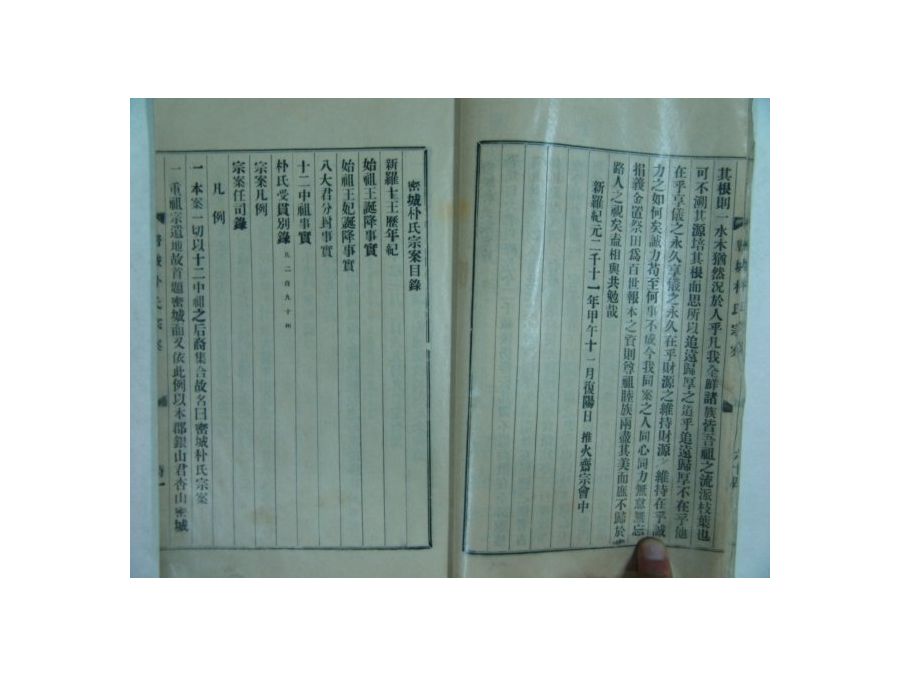 其根則一水木猶然況於人乎凡我全鮮諸族皆吾祖之流派枝葉也
可不溯其源培其根而思所以追遠歸厚之道乎追遠歸厚不在乎他
在乎享儀之永久享儀之永久在乎財源之維持財源之維持在乎誠
力之如何矣誠力苟至何事不成今我同案之人同心同力無怠無忘
捐義金置祭田爲百世報本之資則尊祖睦族兩盡其美而庶不歸於
路人之視矣盍相與共勉哉
新羅紀元二千十一年甲午十一月復陽日 推火齋宗會中
密城朴氏宗案目錄
新羅十王歷年紀
始祖王誕降事實
始祖王妃誕降事實
八大君分封事實
十二中祖事實
朴氏受貫別錄 凡二百九十四
宗案凡例
宗案任司錄
凡例
一本案一切以十二中祖之后裔集合故名曰密城朴氏宗案
一重祖宗遺地故首題密城而又依此例以本郡銀山君杏山密城